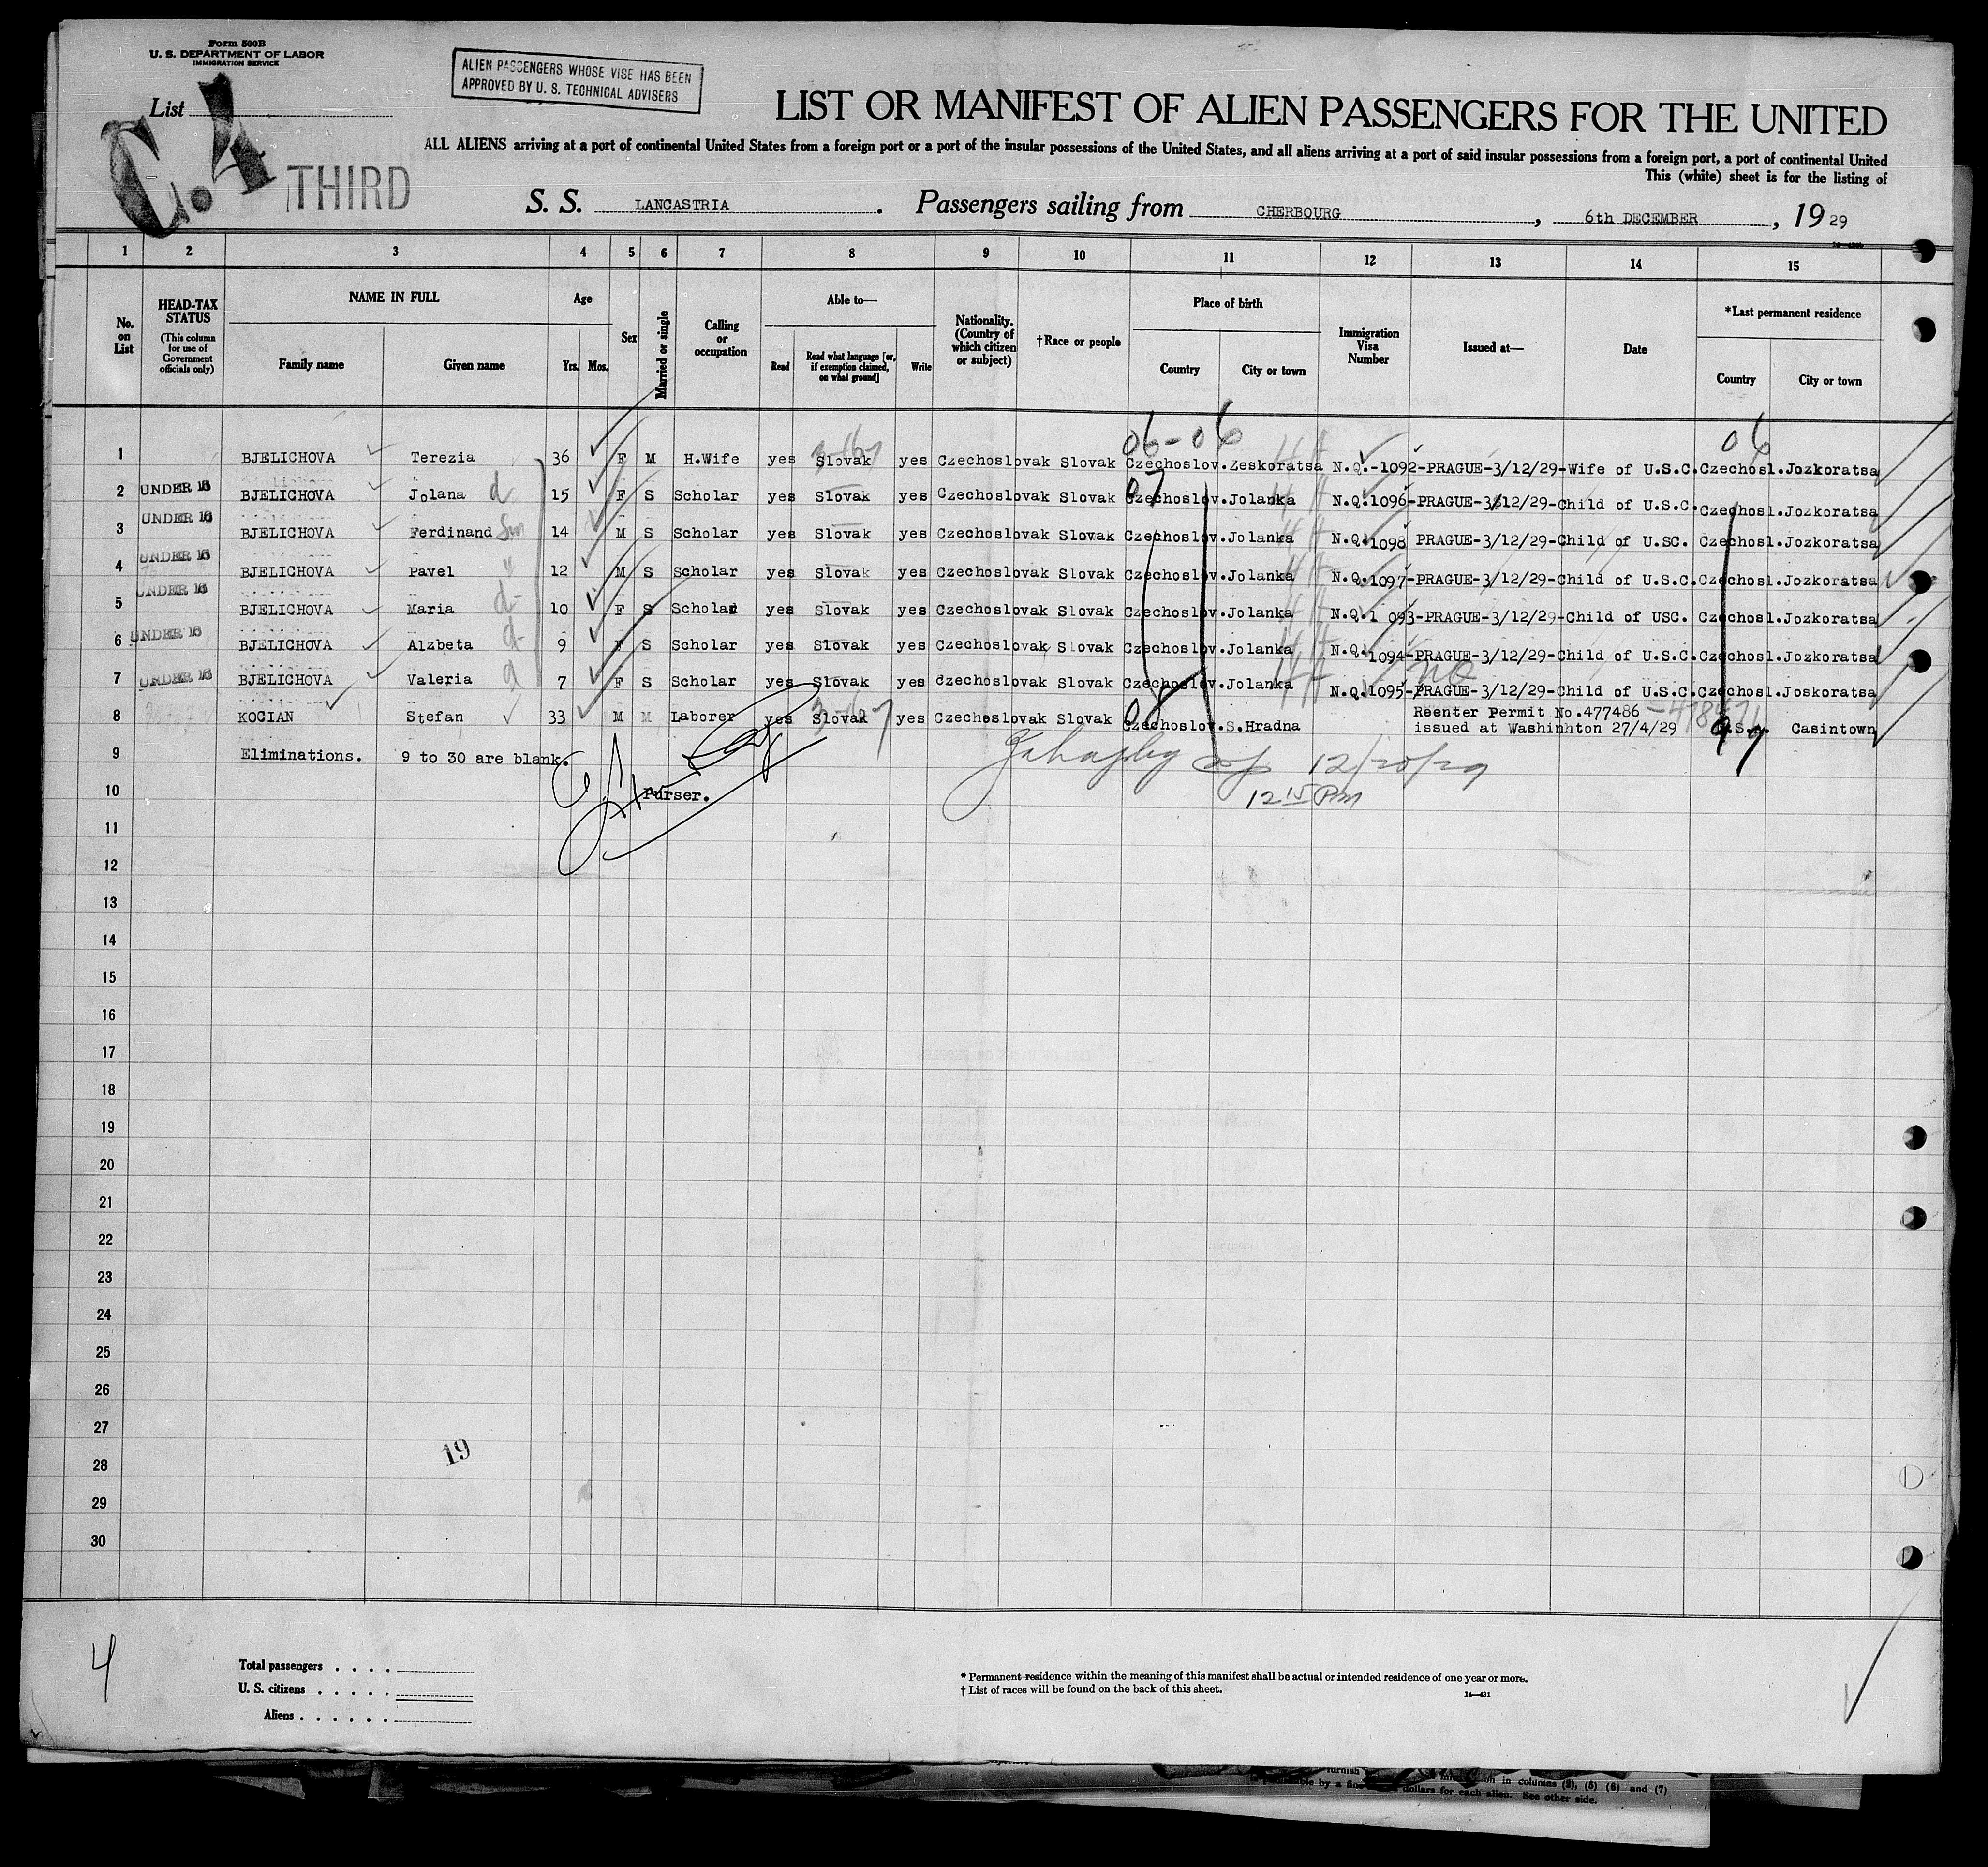 Form 500B
U. S. DEPARTMENT OF LABOR
IMMIGRATION SERVICE
ALIEN PASSENGERS WHOSE VISE HAS BEEN
APPROVED BY U. S. TECHNICAL ADVISERS
List
C.4
THIRD
LIST OR MANIFEST OF ALIEN PASSENGERS FOR THE UNITED
ALL ALIENS arriving at a port of continental United States from a foreign port or a port of the insular possessions of the United States, and all aliens arriving at a port of said insular possessions from a foreign port, a port of continental United
This (white) sheet is for the listing of
S. S. LANCASTRIA. Passengers sailing from CHERBOURG, 6th DECEMBER, 1929
1 2 3 4 5 6 7 8 9 10 11 12 13 14 15
No. on List
HEAD-TAX STATUS
(This column for use of Government officials only)
NAME IN FULL
Family name
Given name
Age
Yrs. Mos.
Sex
Married or single
Calling or occupation
Able to—
Read
Read what language [or, if exemption claimed, on what ground]
Write
Nationality. (Country of which citizen or subject)
†Race or people
Place of birth
Country
City or town
Immigration Visa Number
Issued at—
Date
*Last permanent residence
Country
City or town
06-06
06
1 BJELICHOVA Terezia 36 F M H.Wife yes Slovak yes Czechoslovak Slovak Czechoslov. Zeskoratsa N.Q.-1092-PRAGUE-3/12/29-Wife of U.S.C. Czechosl. Jozkoratsa
2 UNDER 16 BJELICHOVA Jolana d 15 F S Scholar yes Slovak yes Czechoslovak Slovak Czechoslov. Jolanka N.Q.1096-PRAGUE-3/12/29-Child of U.S.C. Czechosl. Jozkoratsa
3 UNDER 16 BJELICHOVA Ferdinand Son 14 M S Scholar yes Slovak yes Czechoslovak Slovak Czechoslov. Jolanka N.Q.1098 PRAGUE-3/12/29-Child of U.SC. Czechosl. Jozkoratsa
4 UNDER 16 BJELICHOVA Pavel " 12 M S Scholar yes Slovak yes Czechoslovak Slovak Czechoslov. Jolanka N.Q.1097-PRAGUE-3/12/29-Child of U.S.C. Czechosl. Jozkoratsa
5 UNDER 16 BJELICHOVA Maria d- 10 F S Scholar yes Slovak yes Czechoslovak Slovak Czechoslov. Jolanka N.Q.1 093-PRAGUE-3/12/29-Child of USC. Czechosl. Jozkoratsa
6 UNDER 16 BJELICHOVA Alzbeta d- 9 F S Scholar yes Slovak yes Czechoslovak Slovak Czechoslov. Jolanka N.Q.1094-PRAGUE-3/12/29-Child of U.S.C. Czechosl. Jozkoratsa
7 UNDER 16 BJELICHOVA Valeria d 7 F S Scholar yes Slovak yes Czechoslovak Slovak Czechoslov. Jolanka N.Q.1095-PRAGUE-3/12/29-Child of U.S.C. Czechosl. Joskoratsa
8 KOCIAN Stefan 33 M M Laborer yes Slovak yes Czechoslovak Slovak Czechoslov. S.Hradna Reenter Permit No.477486 issued at Washinhton 27/4/29 U.S.A. Casintown
9 Eliminations. 9 to 30 are blank.
12/20/29
10 Purser.
12 15 Pm
11
12
13
14
15
16
17
18
19
20
21
22
23
24
25
26
27
19
28
29
30
4
Total passengers
U. S. citizens
Aliens
* Permanent residence within the meaning of this manifest shall be actual or intended residence of one year or more.
† List of races will be found on the back of this sheet.
in columns (2), (5) (6) and (7)
by a fine dollars for each alien. See other side.